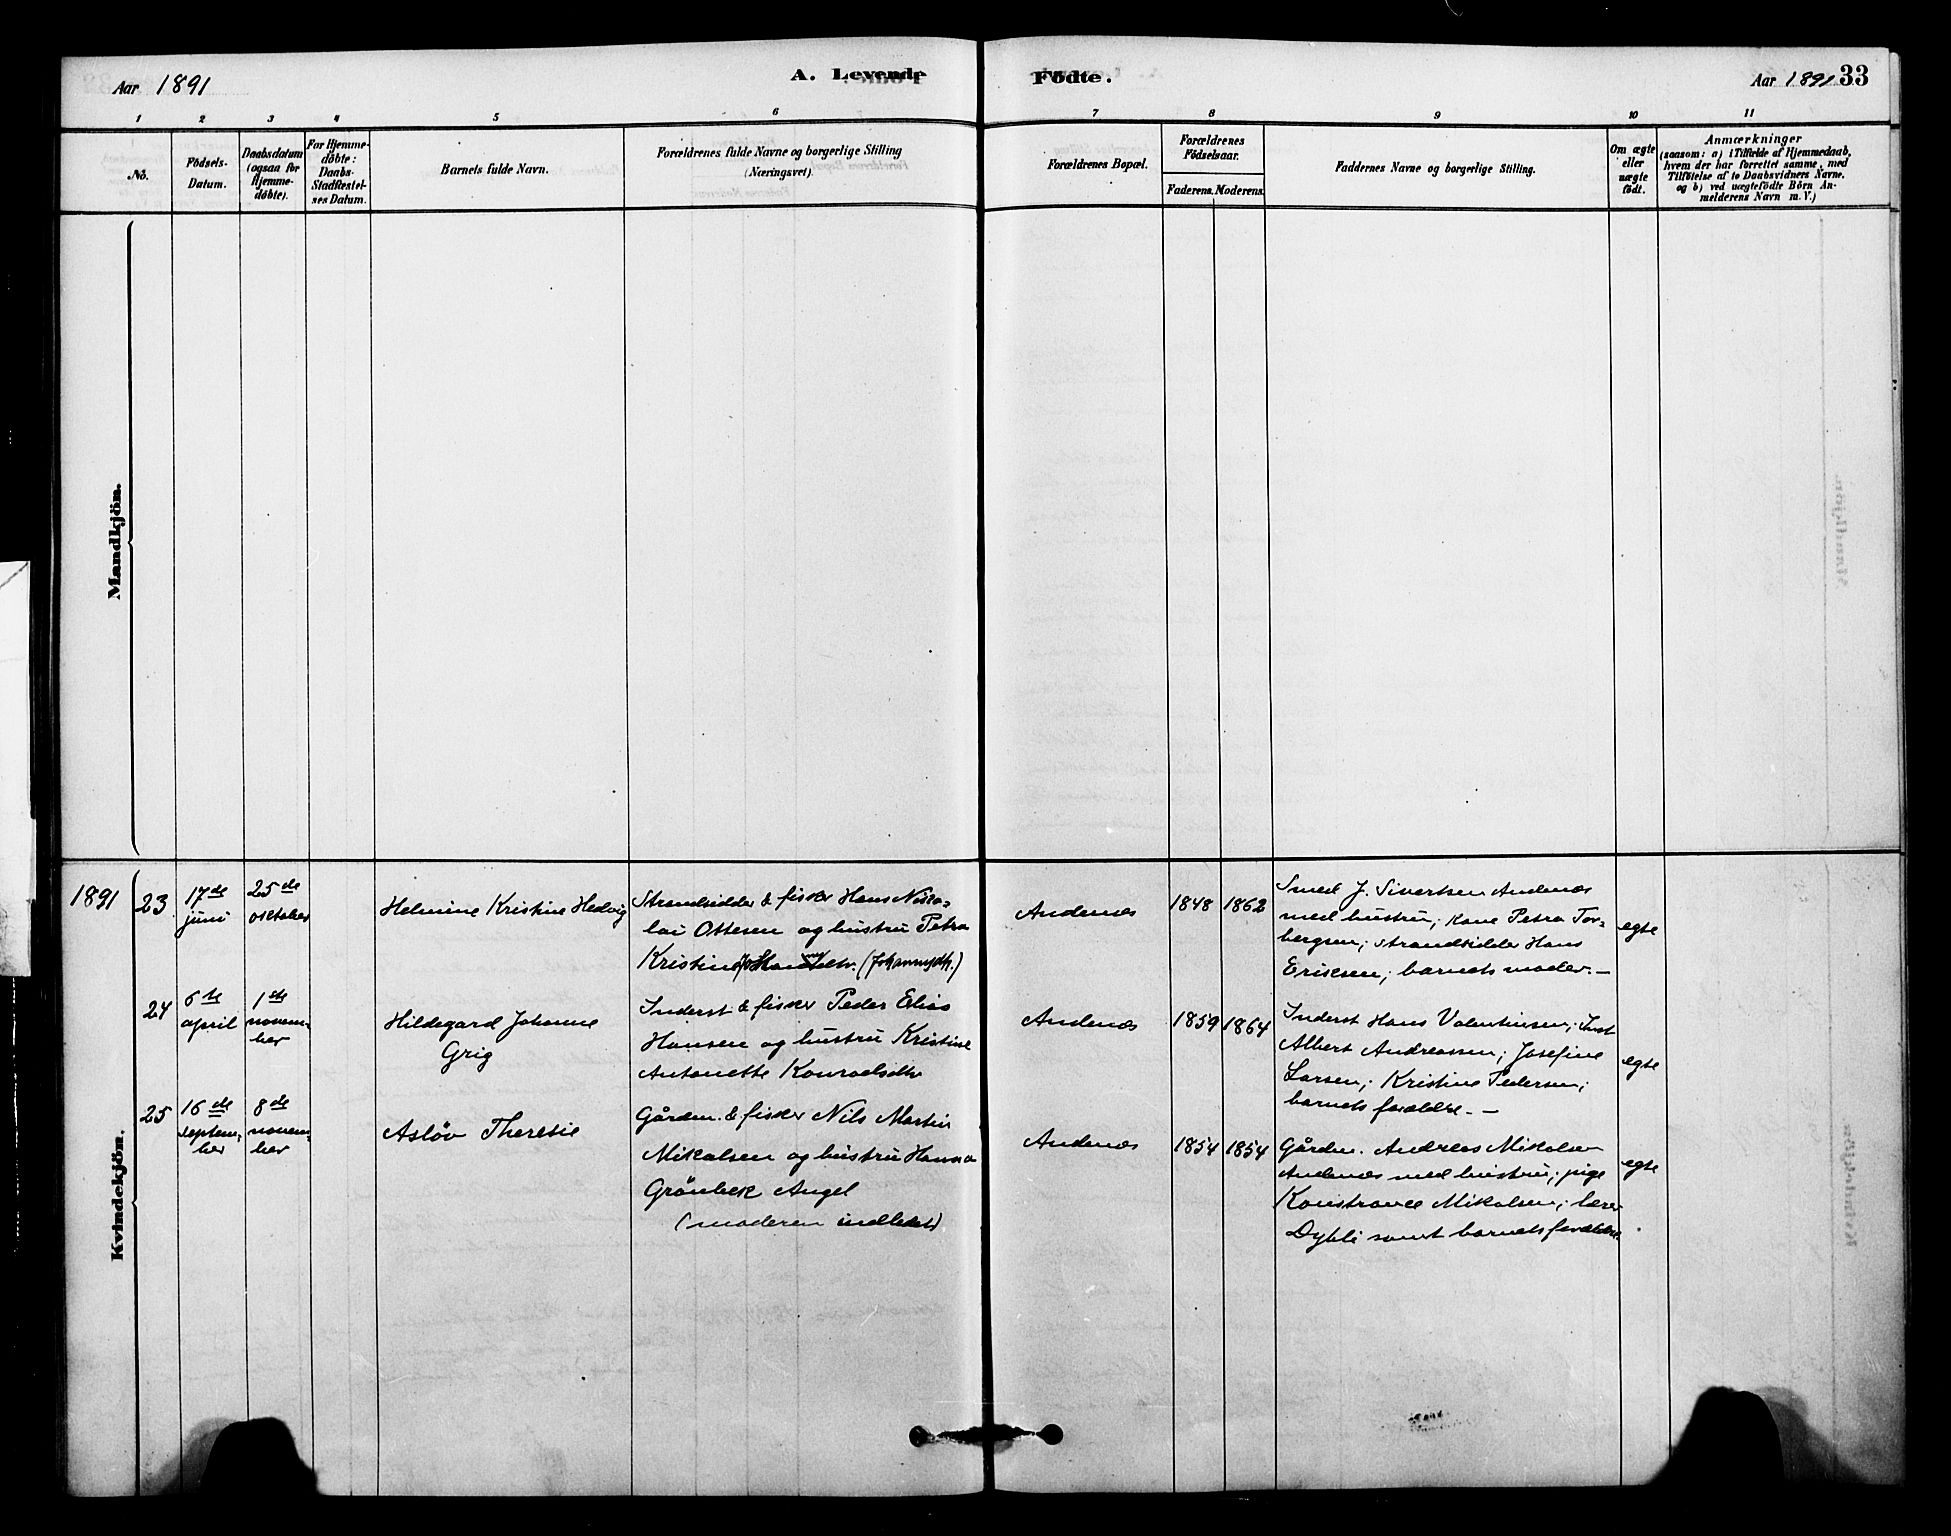 Aar 1891
A. Levende Födte.
Aar 1891 33
1 2 3 4 5 6 7 8 9 10 11
No.
Födsels-
Datum.
Daabsdatum
(ogsaa for
Hjemme-
døbte).
For Hjemme-
døbte:
Daabs-
Stadfæstel-
ses Datum.
Barnets fulde Navn.
Forældrenes fulde Navne og borgerlige Stilling
(Næringsvei).
Forældrenes Bopæl.
Forældrenes
Födselsaar.
Faderens. Moderens.
Faddernes Navne og borgerlige Stilling.
Om ægte
eller
uægte
födt.
Anmærkninger
(saasom: a) i Tilfælde af Hjemmedaab,
hvem der har forrettet samme, med
Tilföielse af to Daabsvidners Navne,
og b) ved uægtefödte Börn An-
melderens Navn m. V.)
Mandkjön.
Kvindekjön.
1891 23
17de
juni
25de
oktober
Helmine Kristine Hedvig
Strandsidder & fisker Hans Niko-
lai Ottesen og hustru Petra
Kristine (Johannesdtr.)
Andenæs
1848 1862
Smed J. Sivertsen Andenæs
med hustru; kone Petra Tor-
bergsen; strandsidder Hans
Eriksen; barnets moder. –
egte
24
6te
april
1ste
novem-
ber
Hildegard Johanne
Grig
Inderst & fisker Peder Elias
Hansen og hustru Kristine
Antonette Konradsdtr
Andenæs
1859 1864
Inderst Hans Valentinsen; Inst
Albert Andreassen; Josefine
Larsen; Kristine Pedersen;
barnets forældre. –
egte
25
16de
septem-
ber
8de
novem-
ber
Asløv Theresie
Gårdm. & fisker Nils Martin
Mikalsen og hustru Hanna
Grönbek Angel
(moderen indledet)
Andenæs
1854 1854
Gårdm. Andreas Mikalsen
Andenæs med hustru; pige
Konstance Mikalsen; lærer
Dybli samt barnets forældre.
egte